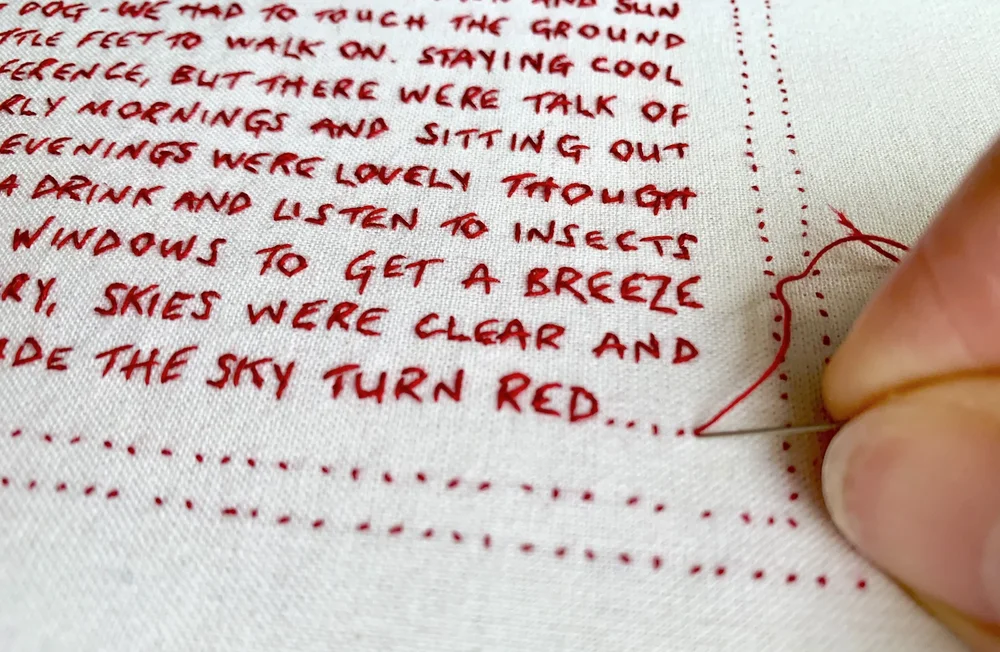 AND SUN
DOG - WE HAD TO TOUCH THE GROUND
FEET TO WALK ON. STAYING COOL
BUT THERE WERE TALK OF
MORNINGS AND SITTING OUT
EVENINGS WERE LOVELY THOUGH
A DRINK AND LISTEN TO INSECTS
WINDOWS TO GET A BREEZE
SKIES WERE CLEAR AND
THE SKY TURN RED.....